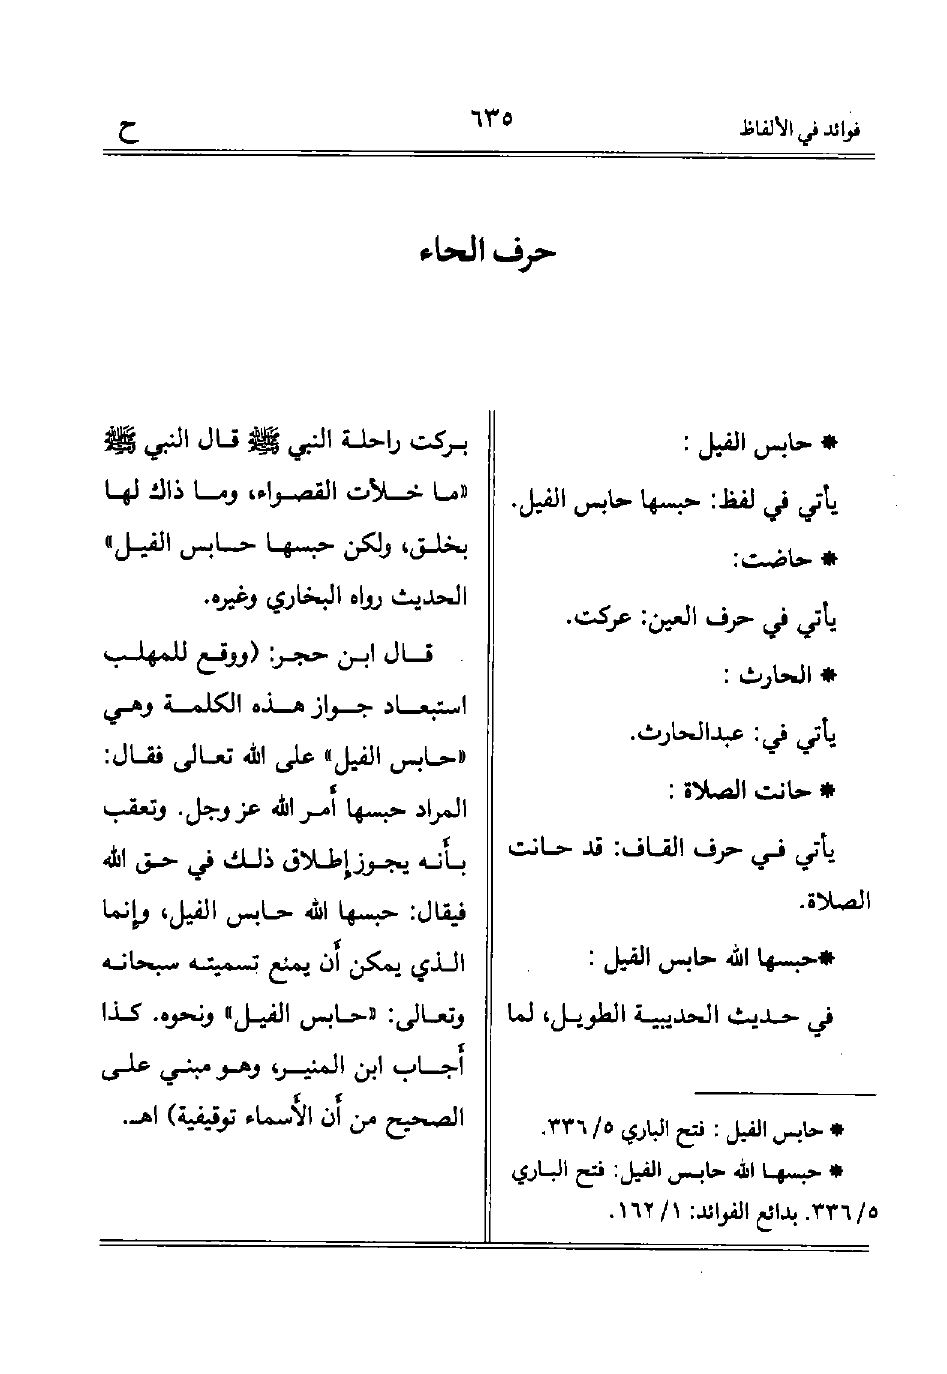 فوائد في الألفاظ
٦٣٥
ح
حرف الحاء
* حابس الفيل :
يأتي في لفظ: حبسها حابس الفيل.
* حاضت:
يأتي في حرف العين: عركت.
* الحارث :
يأتي في: عبدالحارث.
* حانت الصلاة :
يأتي في حرف القاف: قد حانت
الصلاة.
*حبسها الله حابس الفيل :
في حديث الحديبية الطويل، لما
* حابس الفيل : فتح الباري ٥/ ٣٣٦.
* حبسها الله حابس الفيل: فتح الباري
٥/ ٣٣٦. بدائع الفوائد: ١/ ١٦٢.
بركت راحلة النبي ﷺ قال النبي ﷺ
«ما خلأت القصواء، وما ذاك لها
بخلق، ولكن حبسها حابس الفيل»
الحديث رواه البخاري وغيره.
قال ابن حجر: (ووقع للمهلب
استبعاد جواز هذه الكلمة وهي
«حابس الفيل» على الله تعالى فقال:
المراد حبسها أمر الله عز وجل. وتعقب
بأنه يجوز إطلاق ذلك في حق الله
فيقال: حبسها الله حابس الفيل، وإنما
الذي يمكن أن يمنع تسميته سبحانه
وتعالى: «حابس الفيل» ونحوه. كذا
أجاب ابن المنير، وهو مبني على
الصحيح من أن الأسماء توقيفية) اهـ.